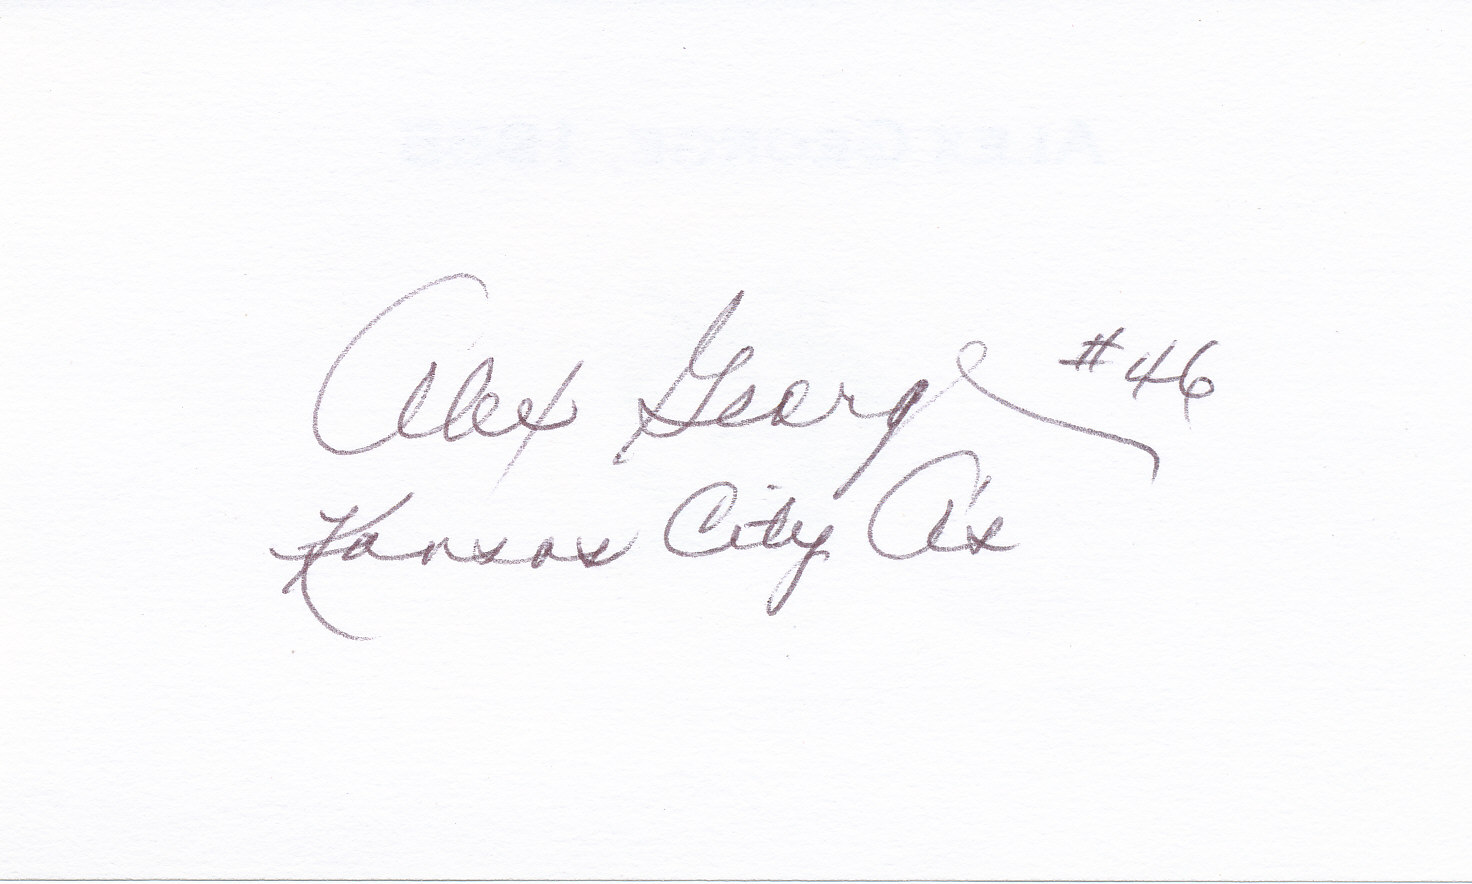 Alex George #46
Kansas City A's